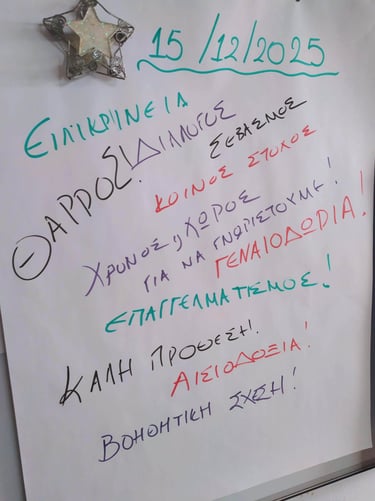 15/12/2025
ΕΙΛΙΚΡΙΝΕΙΑ
ΘΑΡΡΟΣ!
ΔΙΑΛΟΓΟΣ
ΣΕΒΑΣΜΟΣ
ΚΟΙΝΟΣ ΣΤΟΧΟΣ
ΧΡΟΝΟΣ, ΧΩΡΟΣ
ΓΙΑ ΝΑ ΓΝΩΡΙΣΤΟΥΜΕ!
ΓΕΝΑΙΟΔΩΡΙΑ!
ΕΠΑΓΓΕΛΜΑΤΙΣΜΟΣ!
ΚΑΛΗ ΠΡΟΘΕΣΗ!
ΑΙΣΙΟΔΟΞΙΑ!
ΒΟΗΘΗΤΙΚΗ ΣΧΕΣΗ!